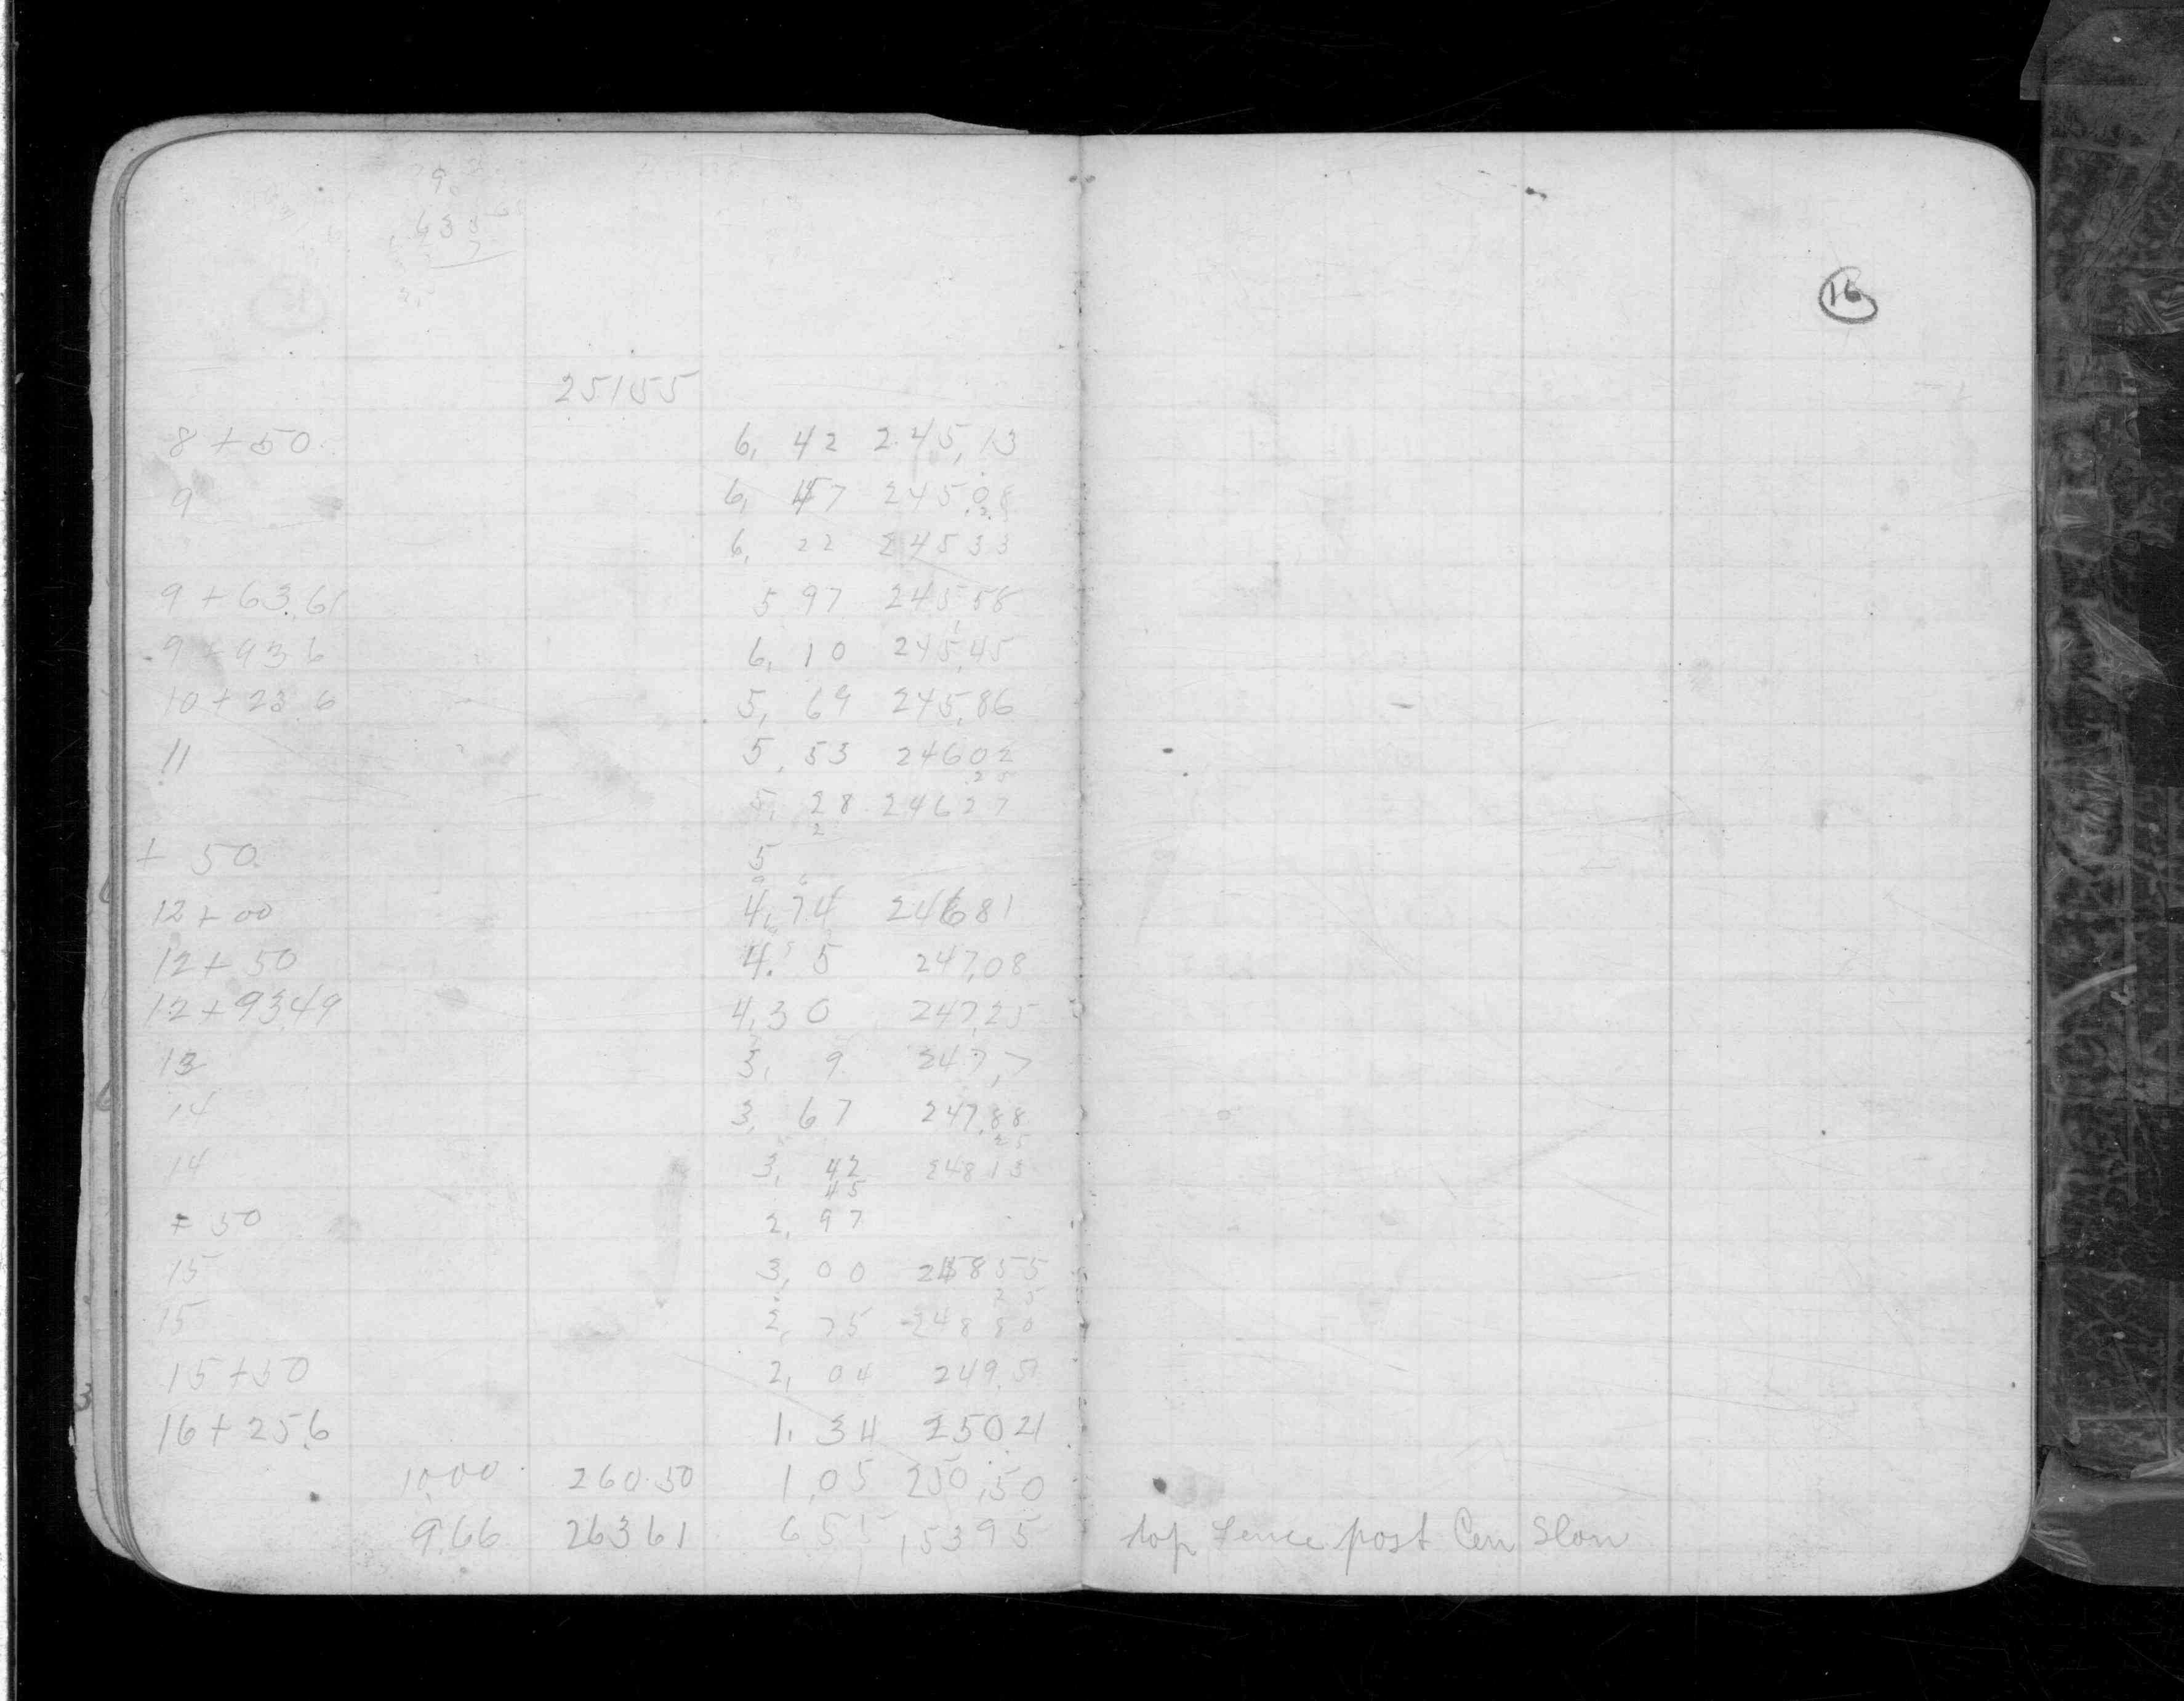 9
633
7
16
25155
8 + 50 6, 42 245,13
9 6, 47 245.08
.2
6, 22 24533
9 + 63.61 5 97 245 58
9 + 93 6 6, 10 245,45
10 + 23.6 5, 69 245,86
11 5, 53 24602
25
5, 28 24627
2
+ 50 5
12 + 00 4,74 24681
12 + 50 4. 5 247,08
12 + 9349 4,30 247,25
13 3, 9 247,7
14 3, 67 247,88
25
14 3, 42 24813
45
+ 50 2, 97
15 3, 00 24855
25
15 2, 75 24880
15 + 50 2, 04 249,51
16 + 25.6 1. 34 25021
10,00 260.50 1,05 250,50
9.66 26361 6 55 ,5395 top Fence post Cen